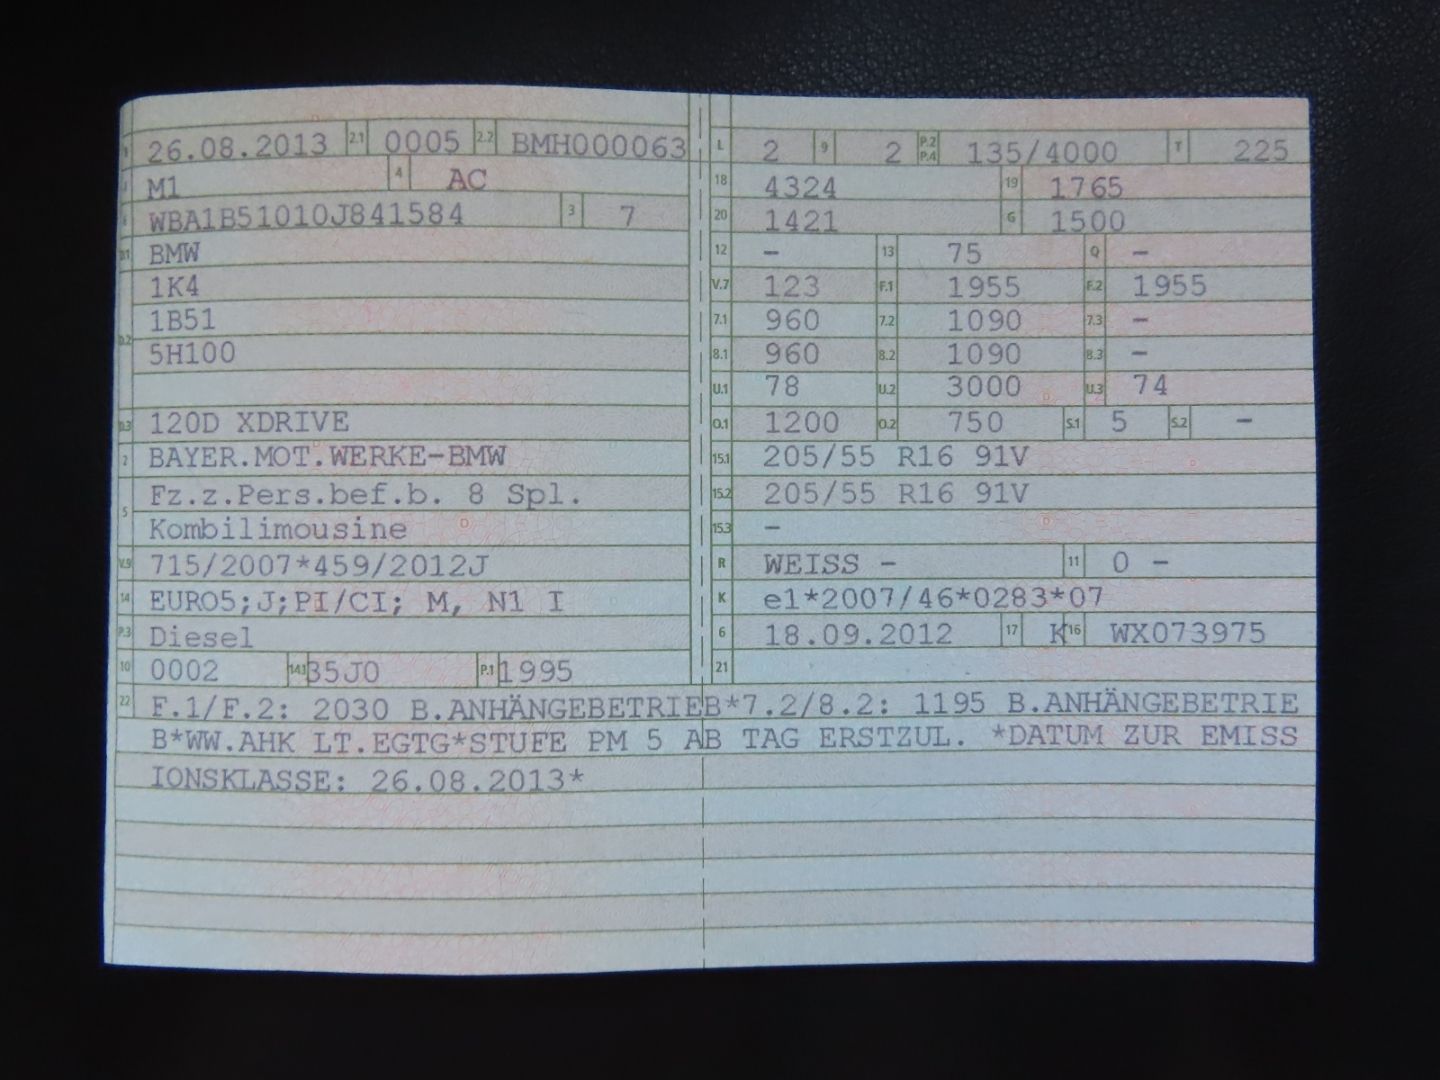 B 26.08.2013 2.1 0005 2.2 BMH000063 L 2 9 2 P.2 P.4 135/4000 T 225
J M1 4 AC 18 4324 19 1765
E WBA1B51010J841584 3 7 20 1421 G 1500
D.1 BMW 12 – 13 75 Q –
1K4 V.7 123 F.1 1955 F.2 1955
D.2 1B51 7.1 960 7.2 1090 7.3 –
5H100 8.1 960 8.2 1090 8.3 –
U.1 78 U.2 3000 U.3 74
D.3 120D XDRIVE O.1 1200 O.2 750 S.1 5 S.2 –
2 BAYER.MOT.WERKE-BMW 15.1 205/55 R16 91V
5 Fz.z.Pers.bef.b. 8 Spl. 15.2 205/55 R16 91V
Kombilimousine 15.3 –
V.9 715/2007*459/2012J R WEISS – 11 0 –
14 EURO5;J;PI/CI; M, N1 I K e1*2007/46*0283*07
P.3 Diesel 6 18.09.2012 17 K 16 WX073975
10 0002 14.1 35J0 P.1 1995 21
22 F.1/F.2: 2030 B.ANHÄNGEBETRIEB*7.2/8.2: 1195 B.ANHÄNGEBETRIE
B*WW.AHK LT.EGTG*STUFE PM 5 AB TAG ERSTZUL. *DATUM ZUR EMISS
IONSKLASSE: 26.08.2013*